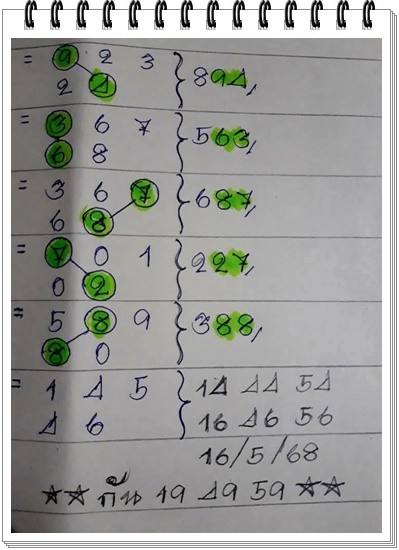 = 9 2 3
2 4 } 894,
= 3 6 7
6 8 } 563,
= 3 6 7
6 8 } 687,
= 7 0 1
0 2 } 227,
= 5 8 9
8 0 } 388,
= 1 4 5 } 14 44 54
4 6 16 46 56
16/5/68
★★ กั้น 19 49 59 ★★